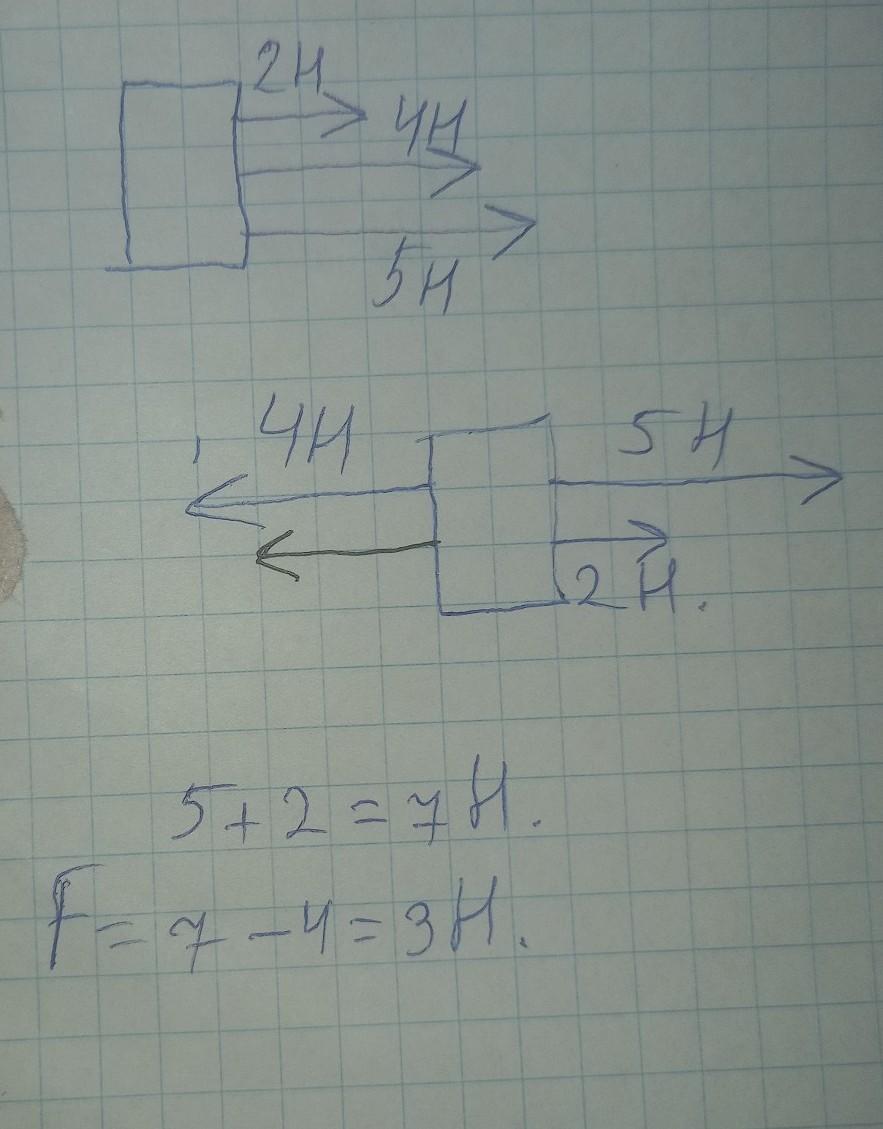 2Н
4Н
5Н
4Н
5Н
2Н.
5+2=7Н.
F=7-4=3Н.